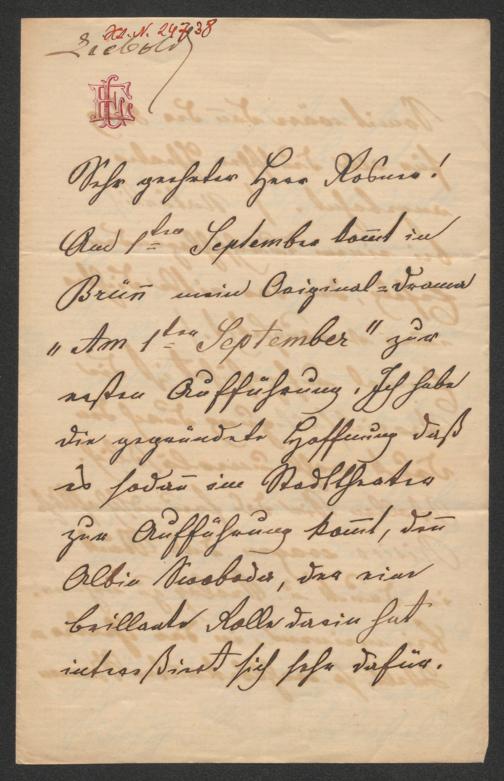 H.I.N. 247138
Sehr geehrter Herr Rosner!
Am 1ten September kom̄t in
Brün̄ mein Original=Drama
"Am 1ten September" zur
ersten Aufführung. Ich habe
die gegründete Hoffnung daß
es sodan̄ im Stadttheater
zur Aufführung kom̄t, den̄
Albin Swoboda, der eine
brillante Rolle darin hat
interßirt sich sehr dafür.